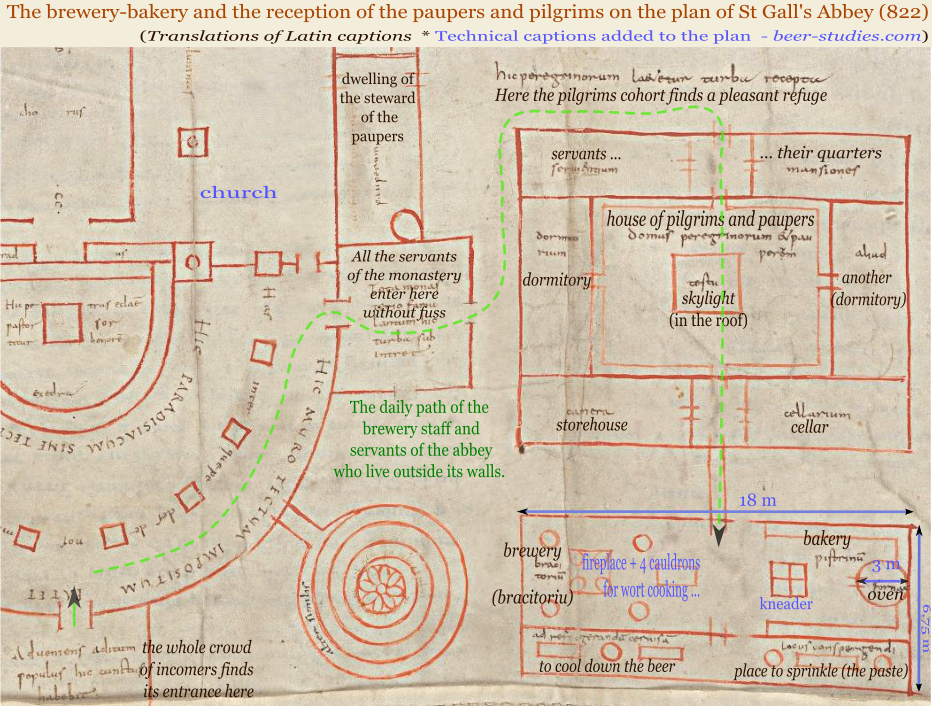 The brewery-bakery and the reception of the paupers and pilgrims on the plan of St Gall's Abbey (822)
(Translations of Latin captions * Technical captions added to the plan - beer-studies.com)
dwelling of
the steward
of the
paupers
hic peregrinorum laetetur turba recepta
Here the pilgrims cohort finds a pleasant refuge
cho rus
church
servants ...
... their quarters
mansiones
house of pilgrims and paupers
domus peregrinorum & pau
perum
dormito
rium
dormitory
testu
skylight
(in the roof)
aliud
another
(dormitory)
All the servants
of the monastery
enter here
without fuss
turba sub
intret
exedra
HIC
PARADISIACUM SINE TECTO
HIC MURO TECTUM IMPOSITUM
The daily path of the
brewery staff and
servants of the abbey
who live outside its walls.
camera
storehouse
cellarium
cellar
18 m
brewery
(bracitoriu)
fireplace + 4 cauldrons
for wort cooking ...
bakery
pistrinū
kneader
3 m
oven
6,75 m
ad refrigerandū cervisā
to cool down the beer
locus conspergendi
place to sprinkle (the paste)
Adveniens aditum
populus hic cunctus
habebit
the whole crowd
of incomers finds
its entrance here